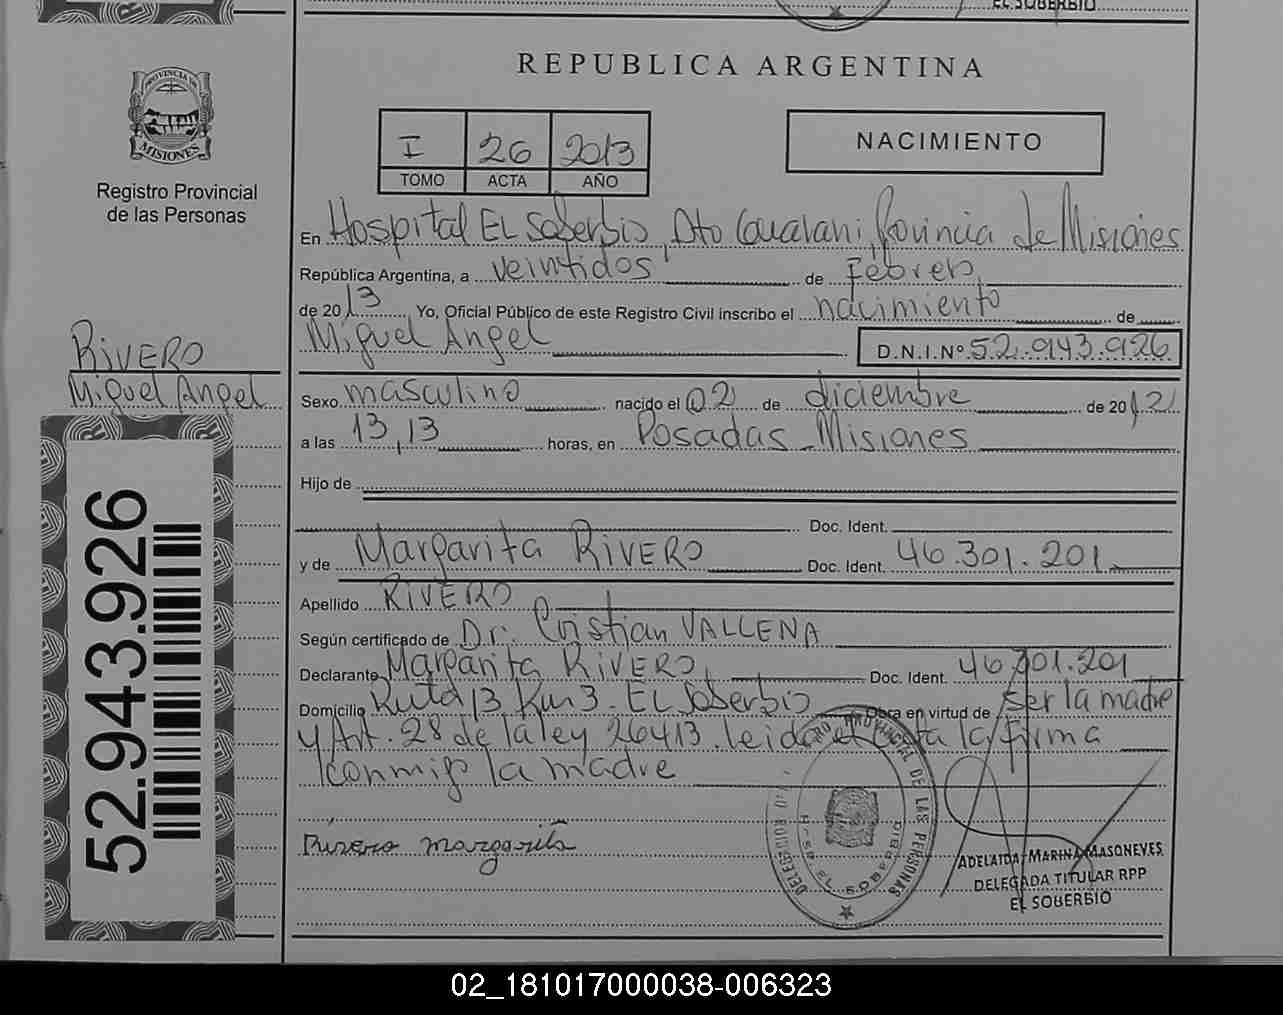 EL SOBERBIO
REPUBLICA ARGENTINA
PROVINCIA DE
MISIONES
Registro Provincial
de las Personas
I 26 2013
TOMO ACTA AÑO
NACIMIENTO
En Hospital EL Soberbio, Dto Guarani, Provincia de Misiones
República Argentina, a veintidos de Febrero
de 2013 Yo, Oficial Público de este Registro Civil inscribo el nacimiento de
Miguel Angel D.N.I.Nº 52.943.926
RIVERO
Miguel Angel
Sexo masculino nacido el 02 de diciembre de 2012
a las 13,13 horas, en Posadas - Misiones
Hijo de
Doc. Ident.
y de Margarita RIVERO Doc. Ident. 46.301.201
Apellido RIVERO
Según certificado de Dr. Cristian VALLENA
Declarante Margarita RIVERO Doc. Ident. 46.301.201
Domicilio Ruta 13 Km 3 - EL Soberbio Obra en virtud de ser la madre
y Art. 28 de la ley 26413. leida el acta la firma
conmigo la madre
Rivero margarita
52.943.926
PROVINCIAL DE LAS PERSONAS
EL SOBERBIO
ADELAIDA MARINA MASONEVES
DELEGADA TITULAR RPP
EL SOBERBIO
02_181017000038-006323